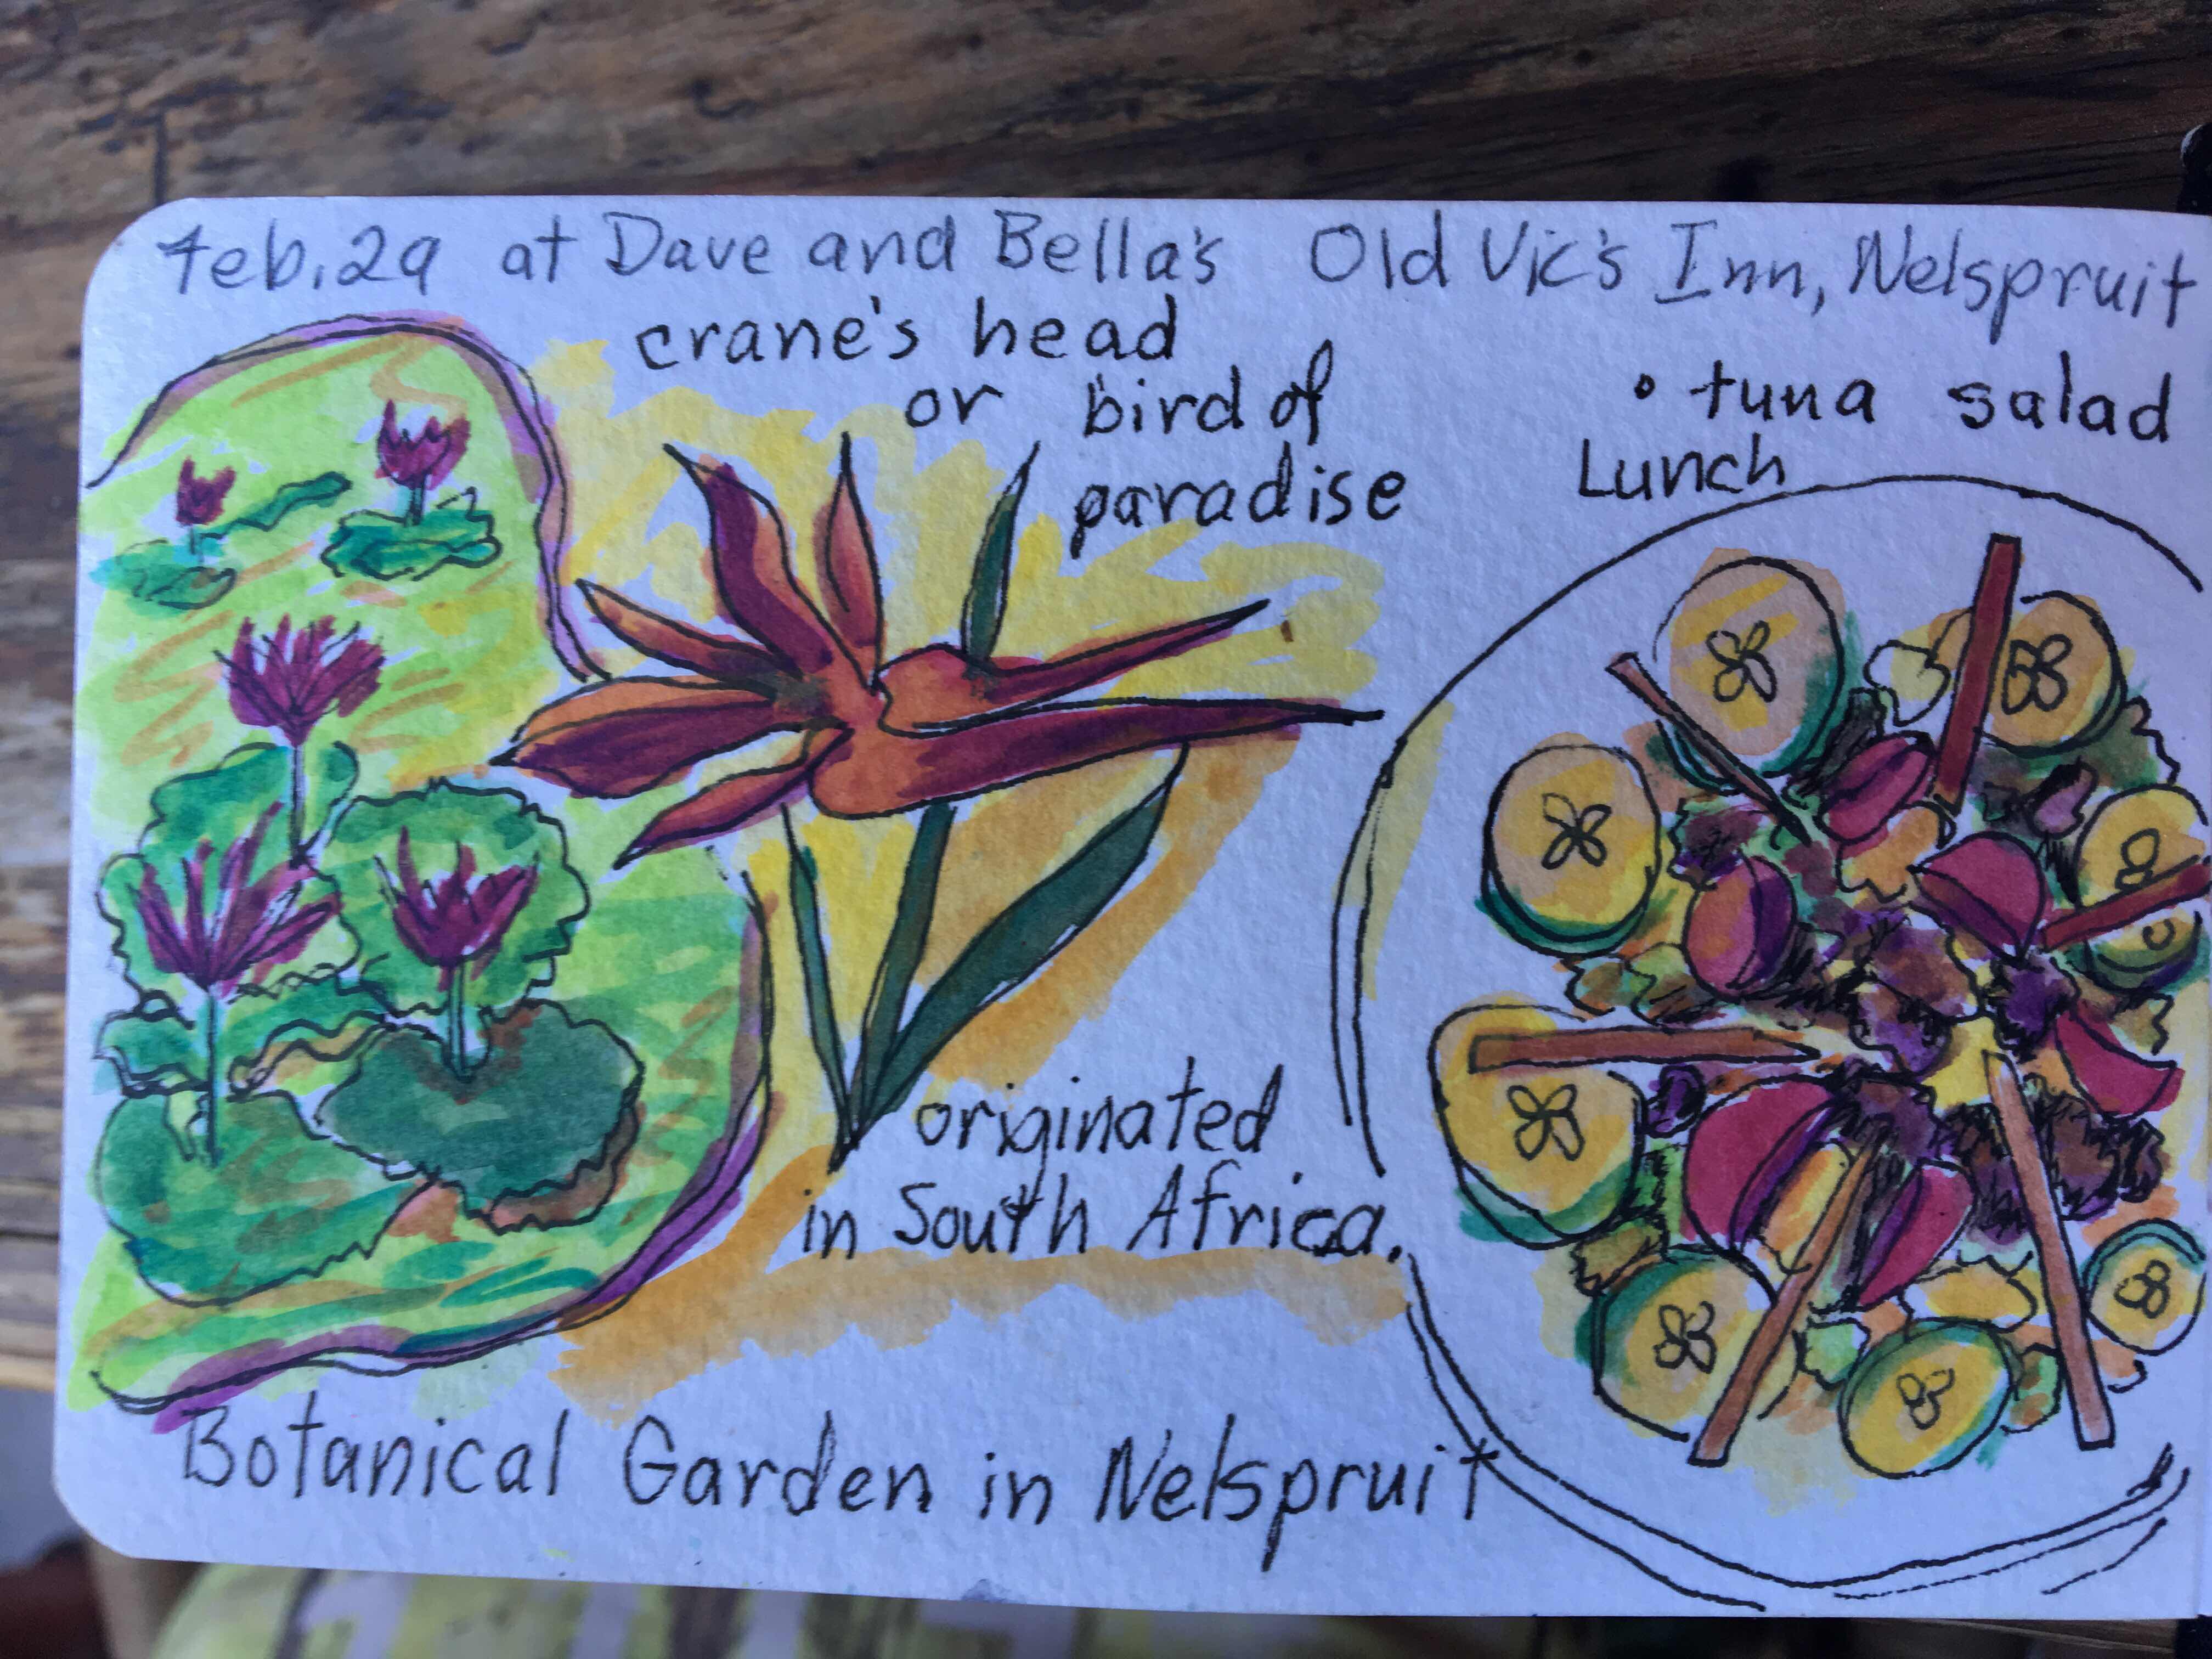 Feb. 29 at Dave and Bella's Old Vic's Inn, Nelspruit
crane's head
or bird of
paradise
• tuna salad
Lunch
originated
in South Africa.
Botanical Garden in Nelspruit